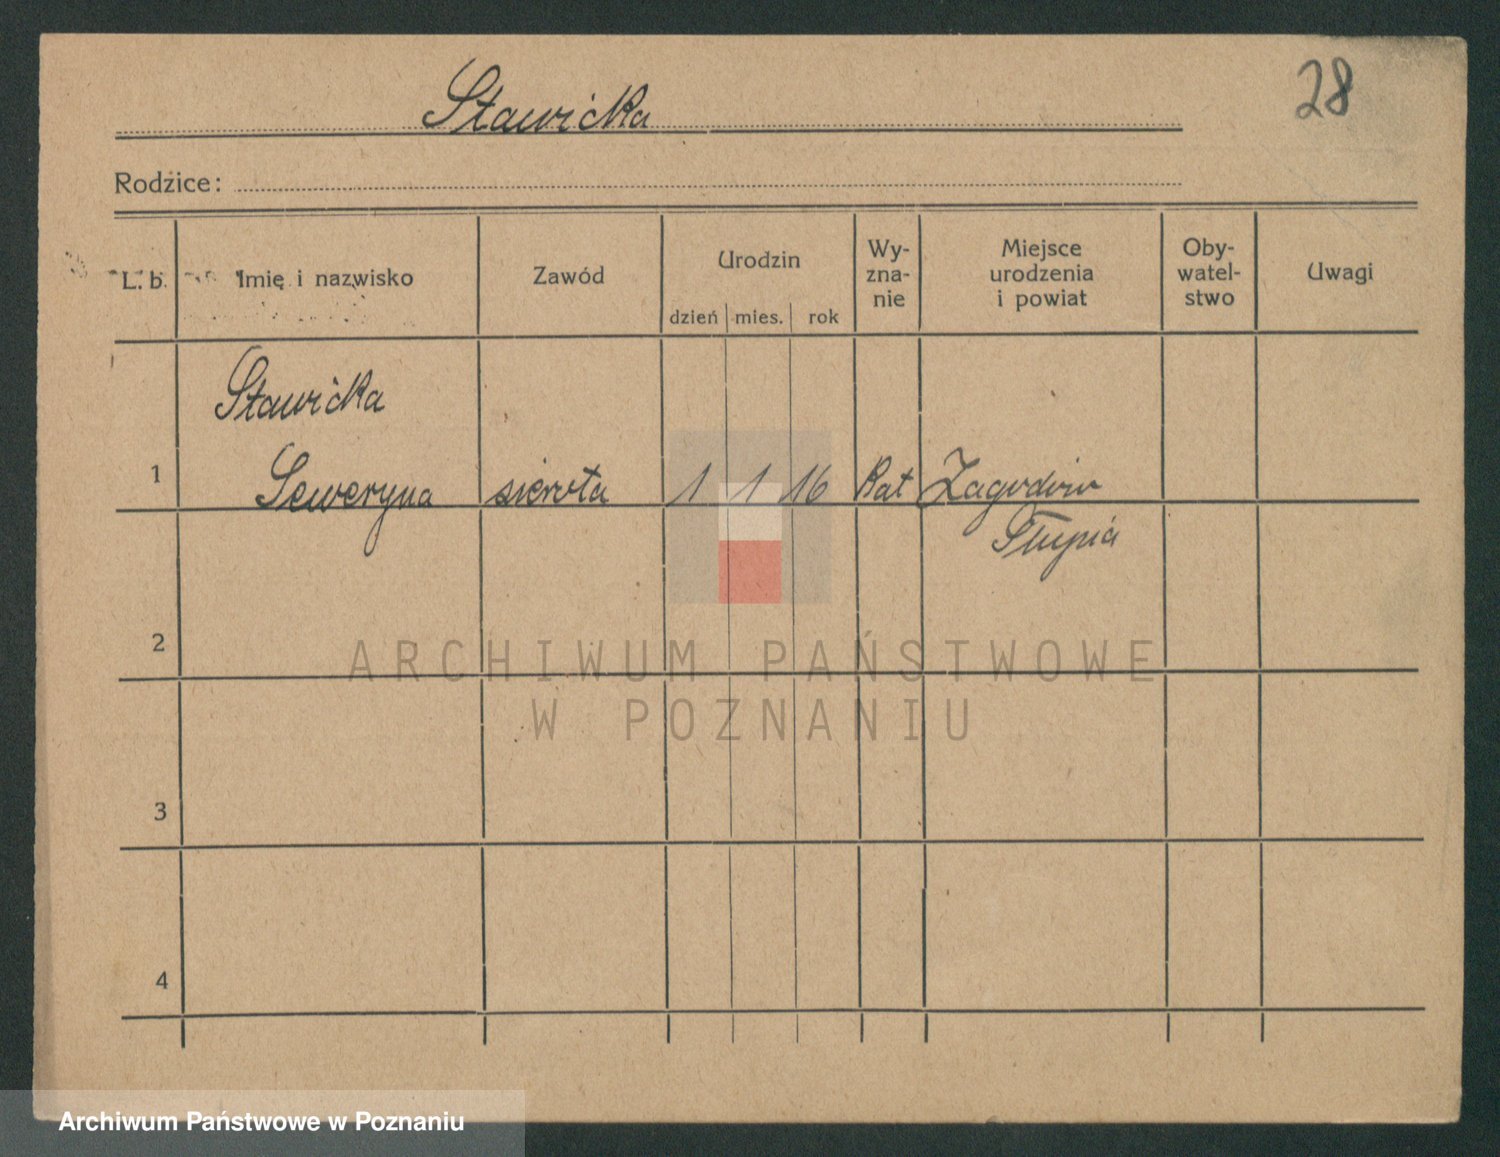 28
Stawicka
Rodzice:
L. b. Imię i nazwisko Zawód Urodzin dzień mies. rok Wy-zna-nie Miejsce urodzenia i powiat Oby-watel-stwo Uwagi
Stawicka
1 Seweryna sierota 1 1 16 Kat
Słupia
2
3
4
ARCHIWUM PAŃSTWOWE
W POZNANIU
Archiwum Państwowe w Poznaniu